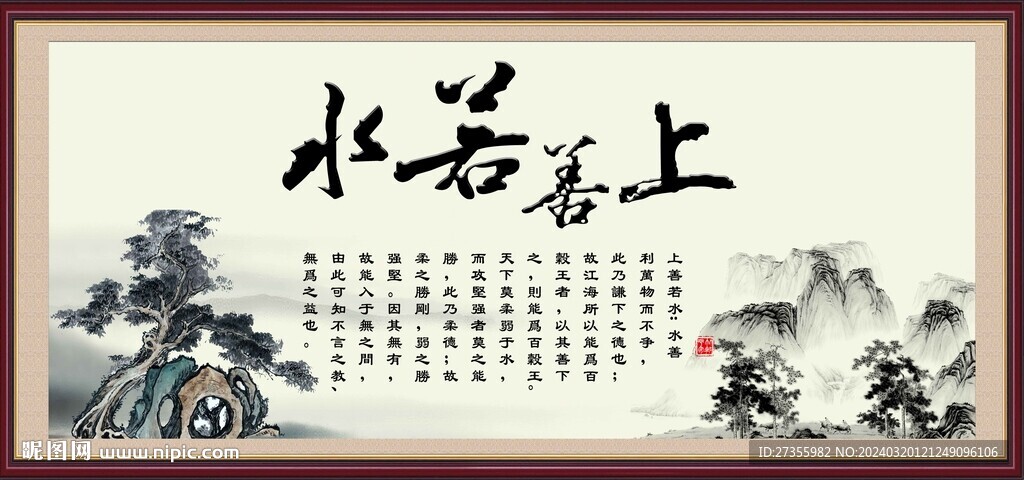 上善若水
上善若水：水善
利萬物而不争，
此乃謙下之德也；
故江海所以能爲百
穀王者，以其善下
之，則能爲百穀王。
天下莫柔弱于水，
而攻堅强者莫之能
勝，此乃柔德；故
柔之勝剛，弱之勝
强堅。因其無有，
故能入于無之間，
由此可知不言之教、
無爲之益也。
昵图网 www.nipic.com
ID:27355982 NO:20240320121249096106